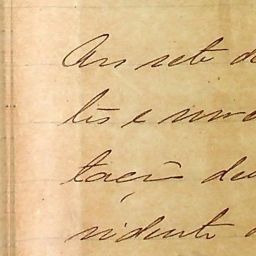 Aos sete d
tos e nove
tação deu
sidente d